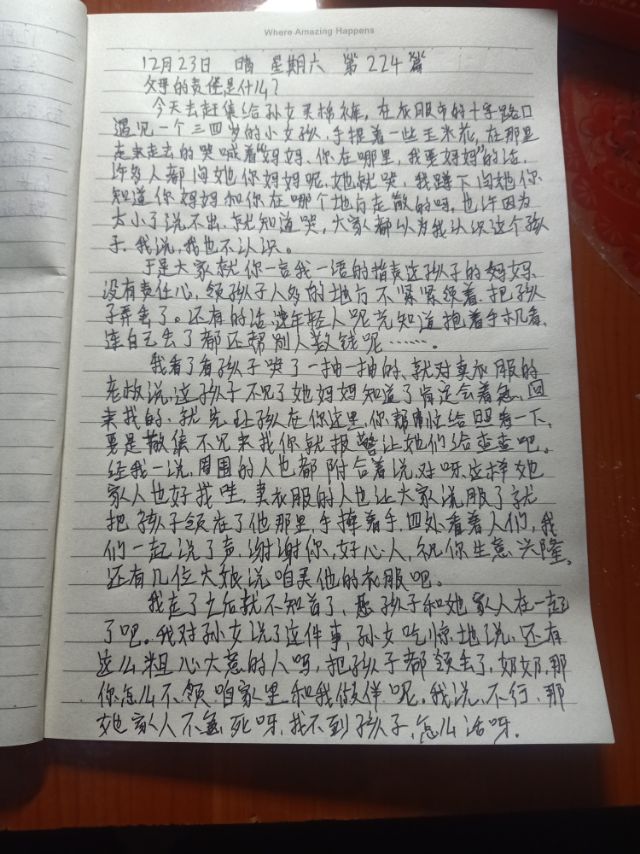 Where Amazing Happens
12月23日 晴 星期六 第224篇
父母的责任是什么?
今天去赶集给孙女买棉裤。在衣服市的十字路口
遇见一个三四岁的小女孩,手提着一些玉米花,在那里
走来走去的哭喊着"妈妈,你在哪里,我要妈妈"的话,
许多人都问她你妈妈呢,她就哭,我蹲下问她你
知道你妈妈和你在哪个地方走散的吗,也许因为
太小了说不出,就知道哭,大家都以为我认识这个孩
子,我说,我也不认识。
于是大家就你一言我一语的指责这孩子的妈妈
没有责任心,领孩子人多的地方不紧紧领着,把孩
子弄丢了。还有的话,这年轻人呢光知道抱着手机看,
连自己丢了都还帮别人数钱呢……。
我看了看孩子哭了一抽一抽的,就对卖衣服的
老板说,这孩子不见了她妈妈知道了肯定会着急,回
来找的,就先让孩子在你这里,你帮忙给照看一下,
要是散集不见来找你就报警让她们给查查吧。
经我一说,周围的人也都附合着说,对呀,这样她
家人也好找哇,卖衣服的人也让大家说服了就
把孩子领在了他那里,手捧着手,四处看着人们,我
们一起说了声,谢谢你,好心人,祝你生意兴隆。
还有几位大娘说咱买他的衣服吧。
我走了之后就不知道了,愿孩子和她家人在一起
了吧。我对孙女说了这件事,孙女吃惊地说,还有
这么粗心大意的人吗,把孩子都领丢了,奶奶,那
你怎么不领咱家里和我做伴呢。我说,不行,那
她家人不急死呀,找不到孩子,怎么活呀。